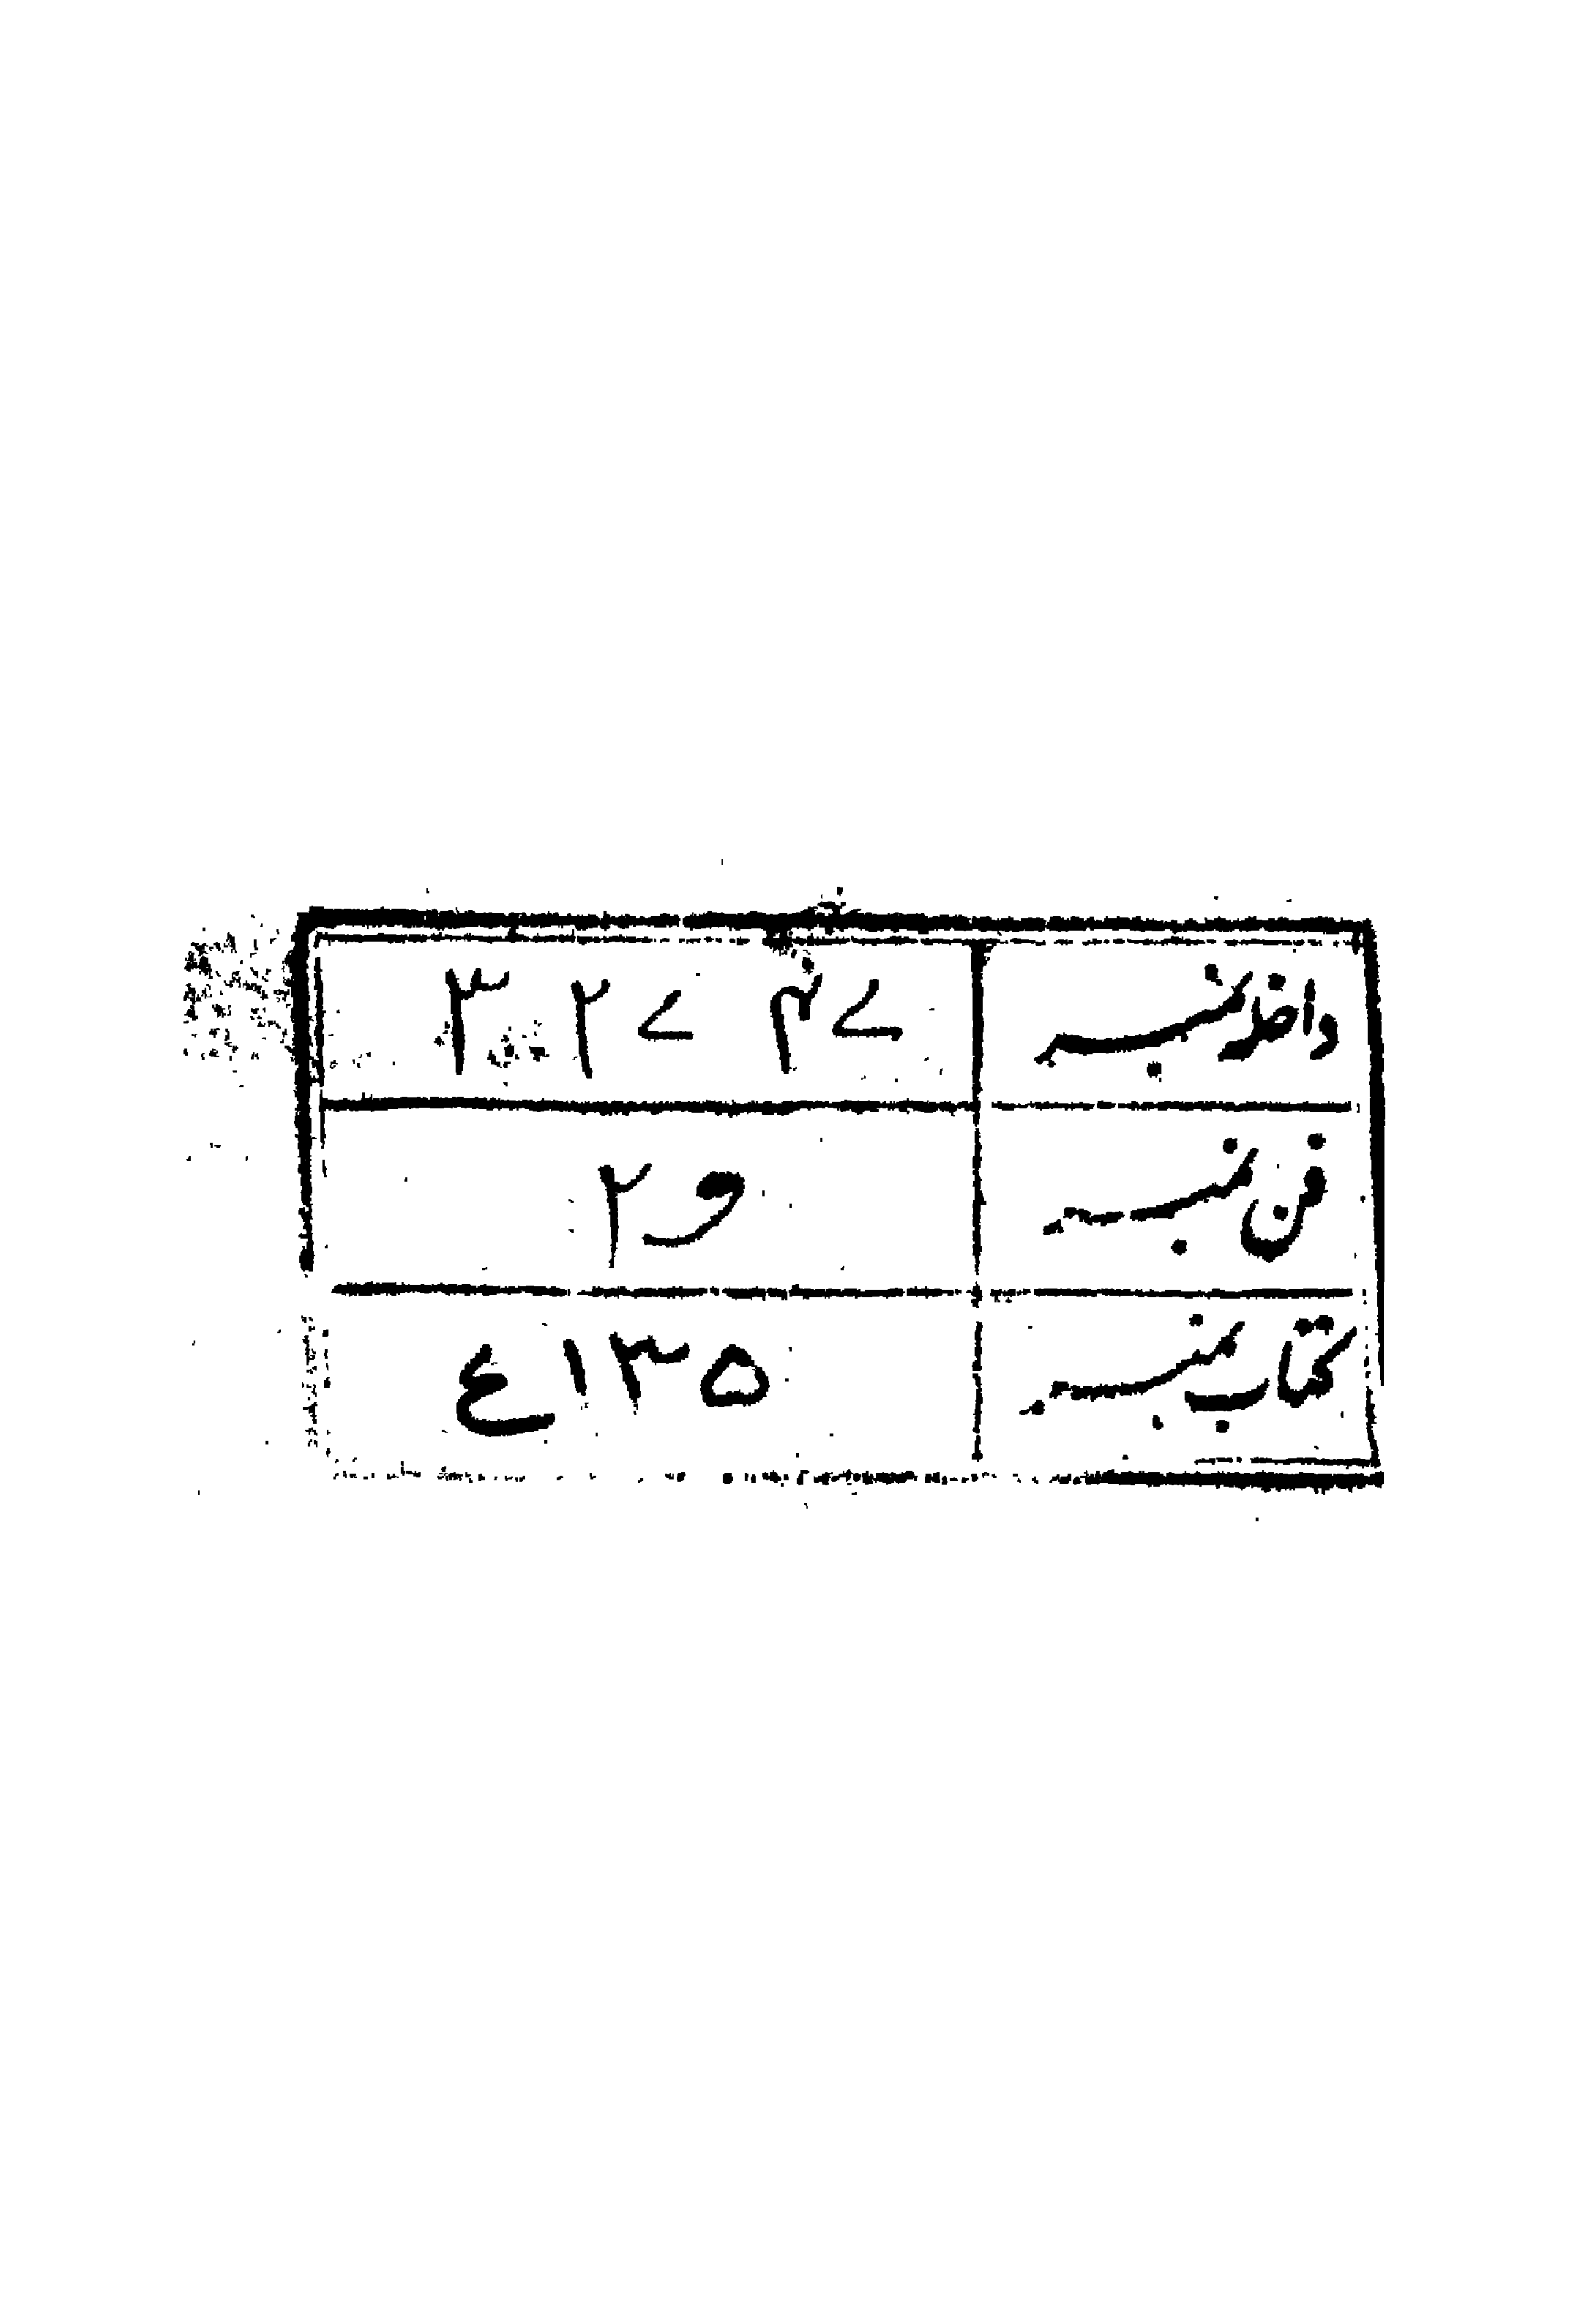 داخلہ نمبر ۳۲۷۴۷
فن نمبر و ۲
کتاب نمبر ۱۳۵ ع